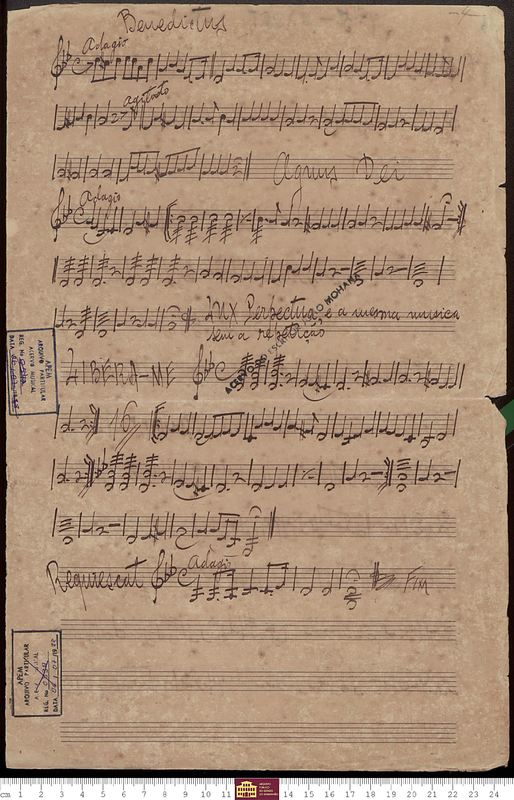 Benedictus
Adagio
Agitato
Agnus Dei
Adagio
LUX Perpectua, é a mesma musica
sem a repetição
LIBERA-ME
16
Requiescat Adagio Fim
APEM
ARQUIVO PARTICULAR
ACERVO MUSICAL
REG. No
DATA
ACERVO DO ESCRITOR JOÃO MOHANA
APEM
ARQUIVO PARTICULAR
REG. No
DATA
cm 1 2 3 4 5 6 7 8 9 10 11 14 15 16 17 18 19 20 21 22 23 24